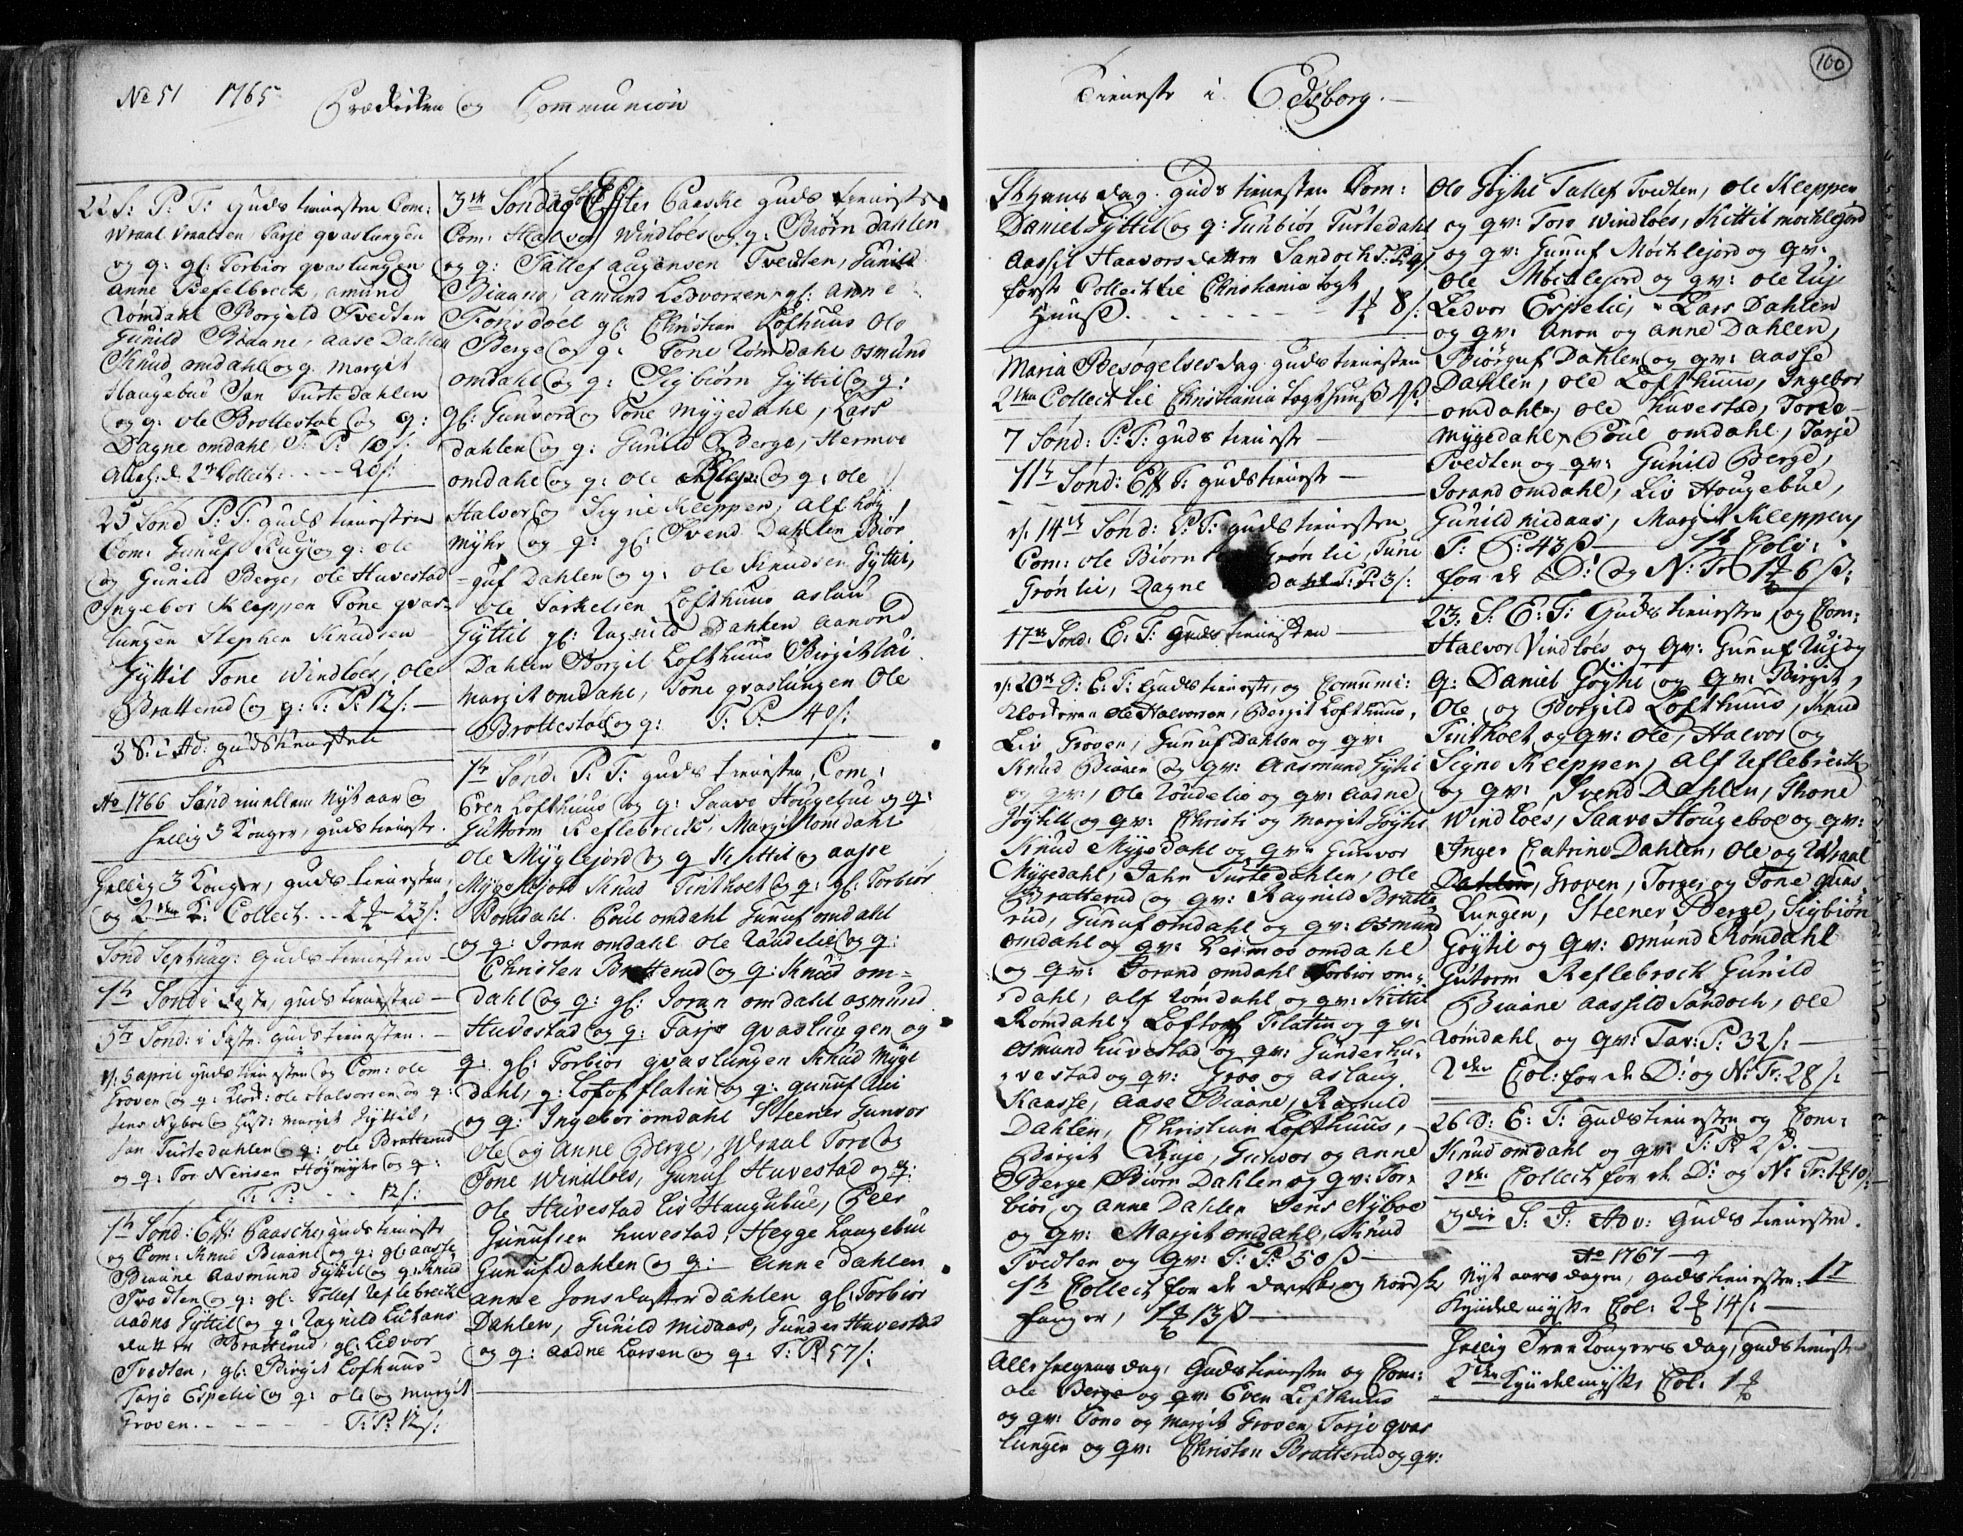 No 51 1765 Prædiken og Communion
22 S: P: T: Guds tienesten Com:
Wraal Wraalsen, Tarje qvaslungen
og q: gl: Torbiør qvaslungen
Anne Refelbreck, Amund
Romdahl Borgild Tvedten
Gunild Biaane, Aase Dahlen
Knud omdahl og q. Margit
Haugebud Jan Turtedahlen
og q: ole Brottestøl og q:
Dagne omdahl. T: P: 10 s:
2r Collect: - - - 20 s:
25 Sønd P: T: guds tienesten
Com: Gunuf Ruy og q: ole
og Gunild Berge, ole Huvestad
Ingebor Kleppen Tone qvas-
lungen Stephen Knudsen
Gyttil Tone Windløs, ole
Bratterud og q: T: P: 12 s: —
3 S: i Ad: guds tienesten
Ao 1766 Sønd imellem Nyt aar og
hellig 3 Konger, guds tieneste.
Hellig 3 Konger, guds tienesten,
og 2den K: Collect. . . 2 23 s:
Sønd Septuag: Guds tienesten —
1te Sønd i faste, guds tienesten —
3te Sønd: i faste. guds tienesten. —
5 april guds tienesten og Com: ole
Groven og q: Klok: ole Halvorsen og q:
Jens Nyboe og Hust: margit Gyttil,
Jan Turtedahlen og q: ole Bratterud
og q: Tor Nerisen Høymyhr og q:
T: P: - - 12 s:
1te Sønd: Eft: Paasche, guds tieneste
og Com: Knud Biaane og q: gl: aasse
Biaane Aasmund Gyttil og q: Knud
Tvedten og q: gl: Tollef Reflebreck
aadne Gyttil og q: Ragnild
datter Bratterud, gl: Ledvor
Tvedten, gl: Birgit Lofthuus
Tarje Espelie og q: ole og margit
Groven. - - - - - T: P: 12 s:
3die Søndag Efter Paaske guds tieneste
Com: Halvor Windløes og q: Biørn Dahlen
og q: Tallef augensen Tvedten, Gunild
Biaane, amund Ledvorsen, gl: anne
gl: Christian Lofthuus Ole
Berge og q: Tone Romdahl osmund
omdahl og q: Sigbiørn Gyttil og q:
gl: Gunvor og Tone Mygedahl, Lars
dahlen og q: Gunild Berge, Hermoe
omdahl og q: ole og q: ole
Halvor og Signe Kleppen, alf høy
myhr og q: gl: Svend Dahlen Biør
guf Dahlen og q: ole Knudsen Gyttil,
ole Torkelsen Lofthuus aslau
Gyttil gl: Ragnild Dahlen aamond
Dahlen Borgil Lofthuus Birgit Rui
margit omdahl, Tone qvaslungen Ole
Brottestøl og q: T: P. 40 s:
1te Sønd: P: T: guds tienesten, Com:
Even Lofthuus og q: Saavo Hougebue og q:
Guttorm Reflebreck, Margit Romdahl
ole Myglejord og q Kittil og aasse
Myglejord Knud Tintholt og q: gl: Torbiør
Romdahl. Poul omdahl Gunuf omdahl
og q: Joran omdahl ole Raudelie og q:
Christen Bratterud og q: Knud om=
dahl og q: gl: Joran omdahl osmund
Huvestad og q: Tarje qvaslungen og
q: gl: Torbiør qvaslungen Knud Myge
dahl, q: Lofof flatin og q: gunuf Rui
og q: Ingebor omdahl Steener Gunvor
Ole og Anne Berge, Wraal Tore og
Tone Windløes, Gunuf Huvestad og q:
Ole Huvestad Liv Haugebue, Peer
Gunufsen huvestad, Hegge haugebue
Gunuf Dahlen og q: — Anne dahlen
anne Jonsdatter dahlen gl: Torbiør
Dahlen, Gunild Midaas, Gunder Huvestad
og q: Aadne Larsen og q. T: P. 57 s:
Tieneste i Edsborg. —
100
Skiærs dag. Guds tienesten Com:
Daniel Gyttil og q: Gunbiør Turtedahl
Aassil Haavorsdatter Sandoch T: P: 4 s:
første Collect til Christiania tugt
Huuse. - - - - - - 1 8 s:
Maria Besøgelses dag. guds tienesten
2den Collect til Christiania Tugthuuse 4 s:
7 Sønd: P: T: guds tieneste —
11te Sønd: Eft T: guds tieneste —
14de Sønd: P: T: guds tienesten
Com: ole Biørn Grønlie, Tune
Grønlie, Dagne dahl T: P: 3 s:
17de Sønd: E: T: Guds tienesten —
20de S: E: T: Guds tieneste, og Comuni:
Klokeren Ole Halvorsen, Bergit Lofthuus,
Liv Groven, Gunuf Dahlen og qv:
Knud Biaaen og qv: Aasmund Gøytil
og qv:, Ole Roudelie og qv: Aadne
Gøytill og qv: Christi og Margit Gøytil
Knud Mygedahl og qv: Gunvor
Mygedahl, Jahn Turtedahlen, Ole
Bratterud og qv: Ragnild Bratte
rud, Gunuf omdahl og qv: Osmund
omdahl og qv: Hermoe omdahl
og qv: Jorand omdahl Torbiør om-
dahl, alf Romdahl og qv: Kittil
Romdahl, Loftof Flatin og qv:
Osmund huvestad og qv: Gunder hu-
vestad og qv: Groe og aslaug
Kaasse, Aase Biaane, Ragnild
Dahlen, Christian Lofthuus,
Berget Ruje, Gunvor og Anne
Berge, Biørn Dahlen og qv: Tor-
biør og Anne Dahlen Jens Nyboe
og qv: Margit omdahl, Knud
Tvedten og qv: T: P: 50 s —
1te Collect for de danske og Norske
fanger, 1 13 s —
Alle helgens dag, Guds tieneste og Com:
ole Berge og qv: Even Lofthuus
og qv: Tone og Margit Groven, Tarje qvas
lungen og qv: Christen Bratterud og qv:
Ole Gøytil Tallef Tvedten, ole Kleppen
og qv: Tore Windløes, Kittil mochlejord
og qv: Gunuf Mochlejord og qv:
Ole Mochlejord og qv: ole Ruj
Ledvor Espelie, Lars Dahlen
og qv: Anon og anne Dahlen,
Biørguf Dahlen og qv: Aasse
Dahlen, ole Lofthuus, Ingebor
omdahl, ole huvestad, Torde
Mygedahl, Poul omdahl, Tarje
Tvedten og qv: Gunild Berge,
Jorand omdahl, Liv Hougebue,
Gunild midaas, Margit Kleppen,
T: P: 43 s — 1te Coly:
for de D: og N: Fr 1 6 s:
23. S: E: T: Guds tieneste og Com:
Halvor Vindløes og qv: Gunuf Ruj og
q: Daniel Gøytil og qv: Birgit,
Ole og Borgild Lofthuus, Knud
Tintholt og qv: ole, Halvor og
Signe Kleppen, Alf Reflebreck
og qv: Svend Dahlen, Thone
Windløes, Saavo Hougeboe og qv:
Inger Catrine Dahlen, Ole og Wraal
Dahlen, Groven, Torger og Tone quas
lungen, Steener Berge, Sigbiørn
Gøytil og qv: Osmund Romdahl
Guttorm Reflebrock Gunild
Biaane Aassild Sandoch, ole
Romdahl og qv: Tav: P: 32 s: —
2den Col: for de D: og N: Fr: 28 s:
26 S: E: T: Guds tieneste og Com:
Knud omdahl og qv: T: P: 2 s: —
2den Collect for de D: og N: Fr: 1 10 s:
3die S: I: Adv: Guds tienesten.
Ao 1767 —
Nyt aars dagen, guds tienesten: 1te
Kyndelmyss Col: 2 14 s: —
Hellig Tree Kongers dag, guds tieneste
2den Kyndelmyss Col: 1